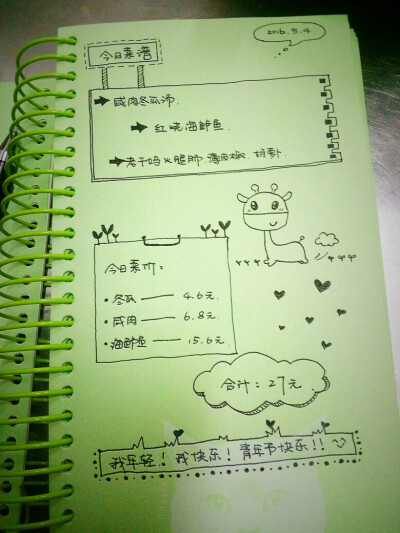 2016.5.4
今日菜谱
咸肉冬瓜汤.
红烧海鲈鱼.
老干妈火腿肠.薄阳椒.胡萝卜
今日菜价:
·冬瓜——4.6元.
·咸肉——6.8元.
·海鲈鱼——15.6元.
合计:27元
我年轻!我快乐!青年节快乐!!